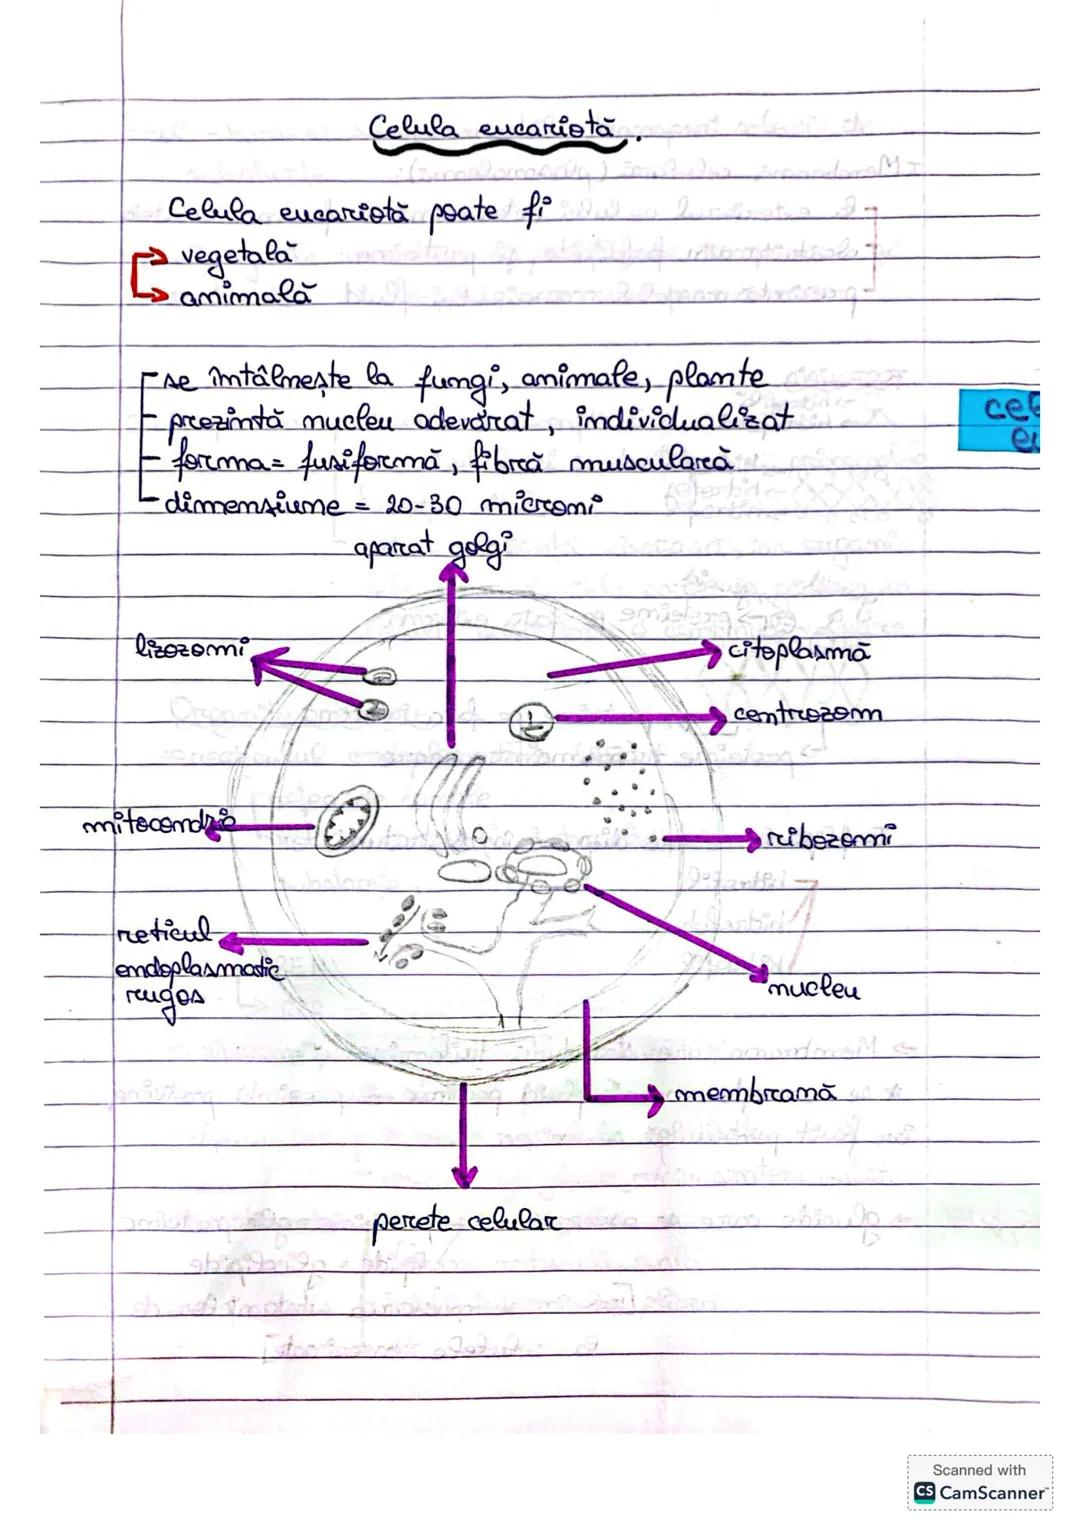 Celula eucariotă.
Celula eucariotă poate fi
vegetală
animală
- se întâlnește la fungi, animale, plante
- prezintă nucleu adevărat, individualizat
- forma = fusiformă, fibră musculară
- dimensiune = 20-30 microni
aparat golgi
lizozomi
citoplasmă
centrozom
mitocondrie
ribozomi
reticul
endoplasmatic
rugos
nucleu
membrană
perete celular
Scanned with
CS CamScanner